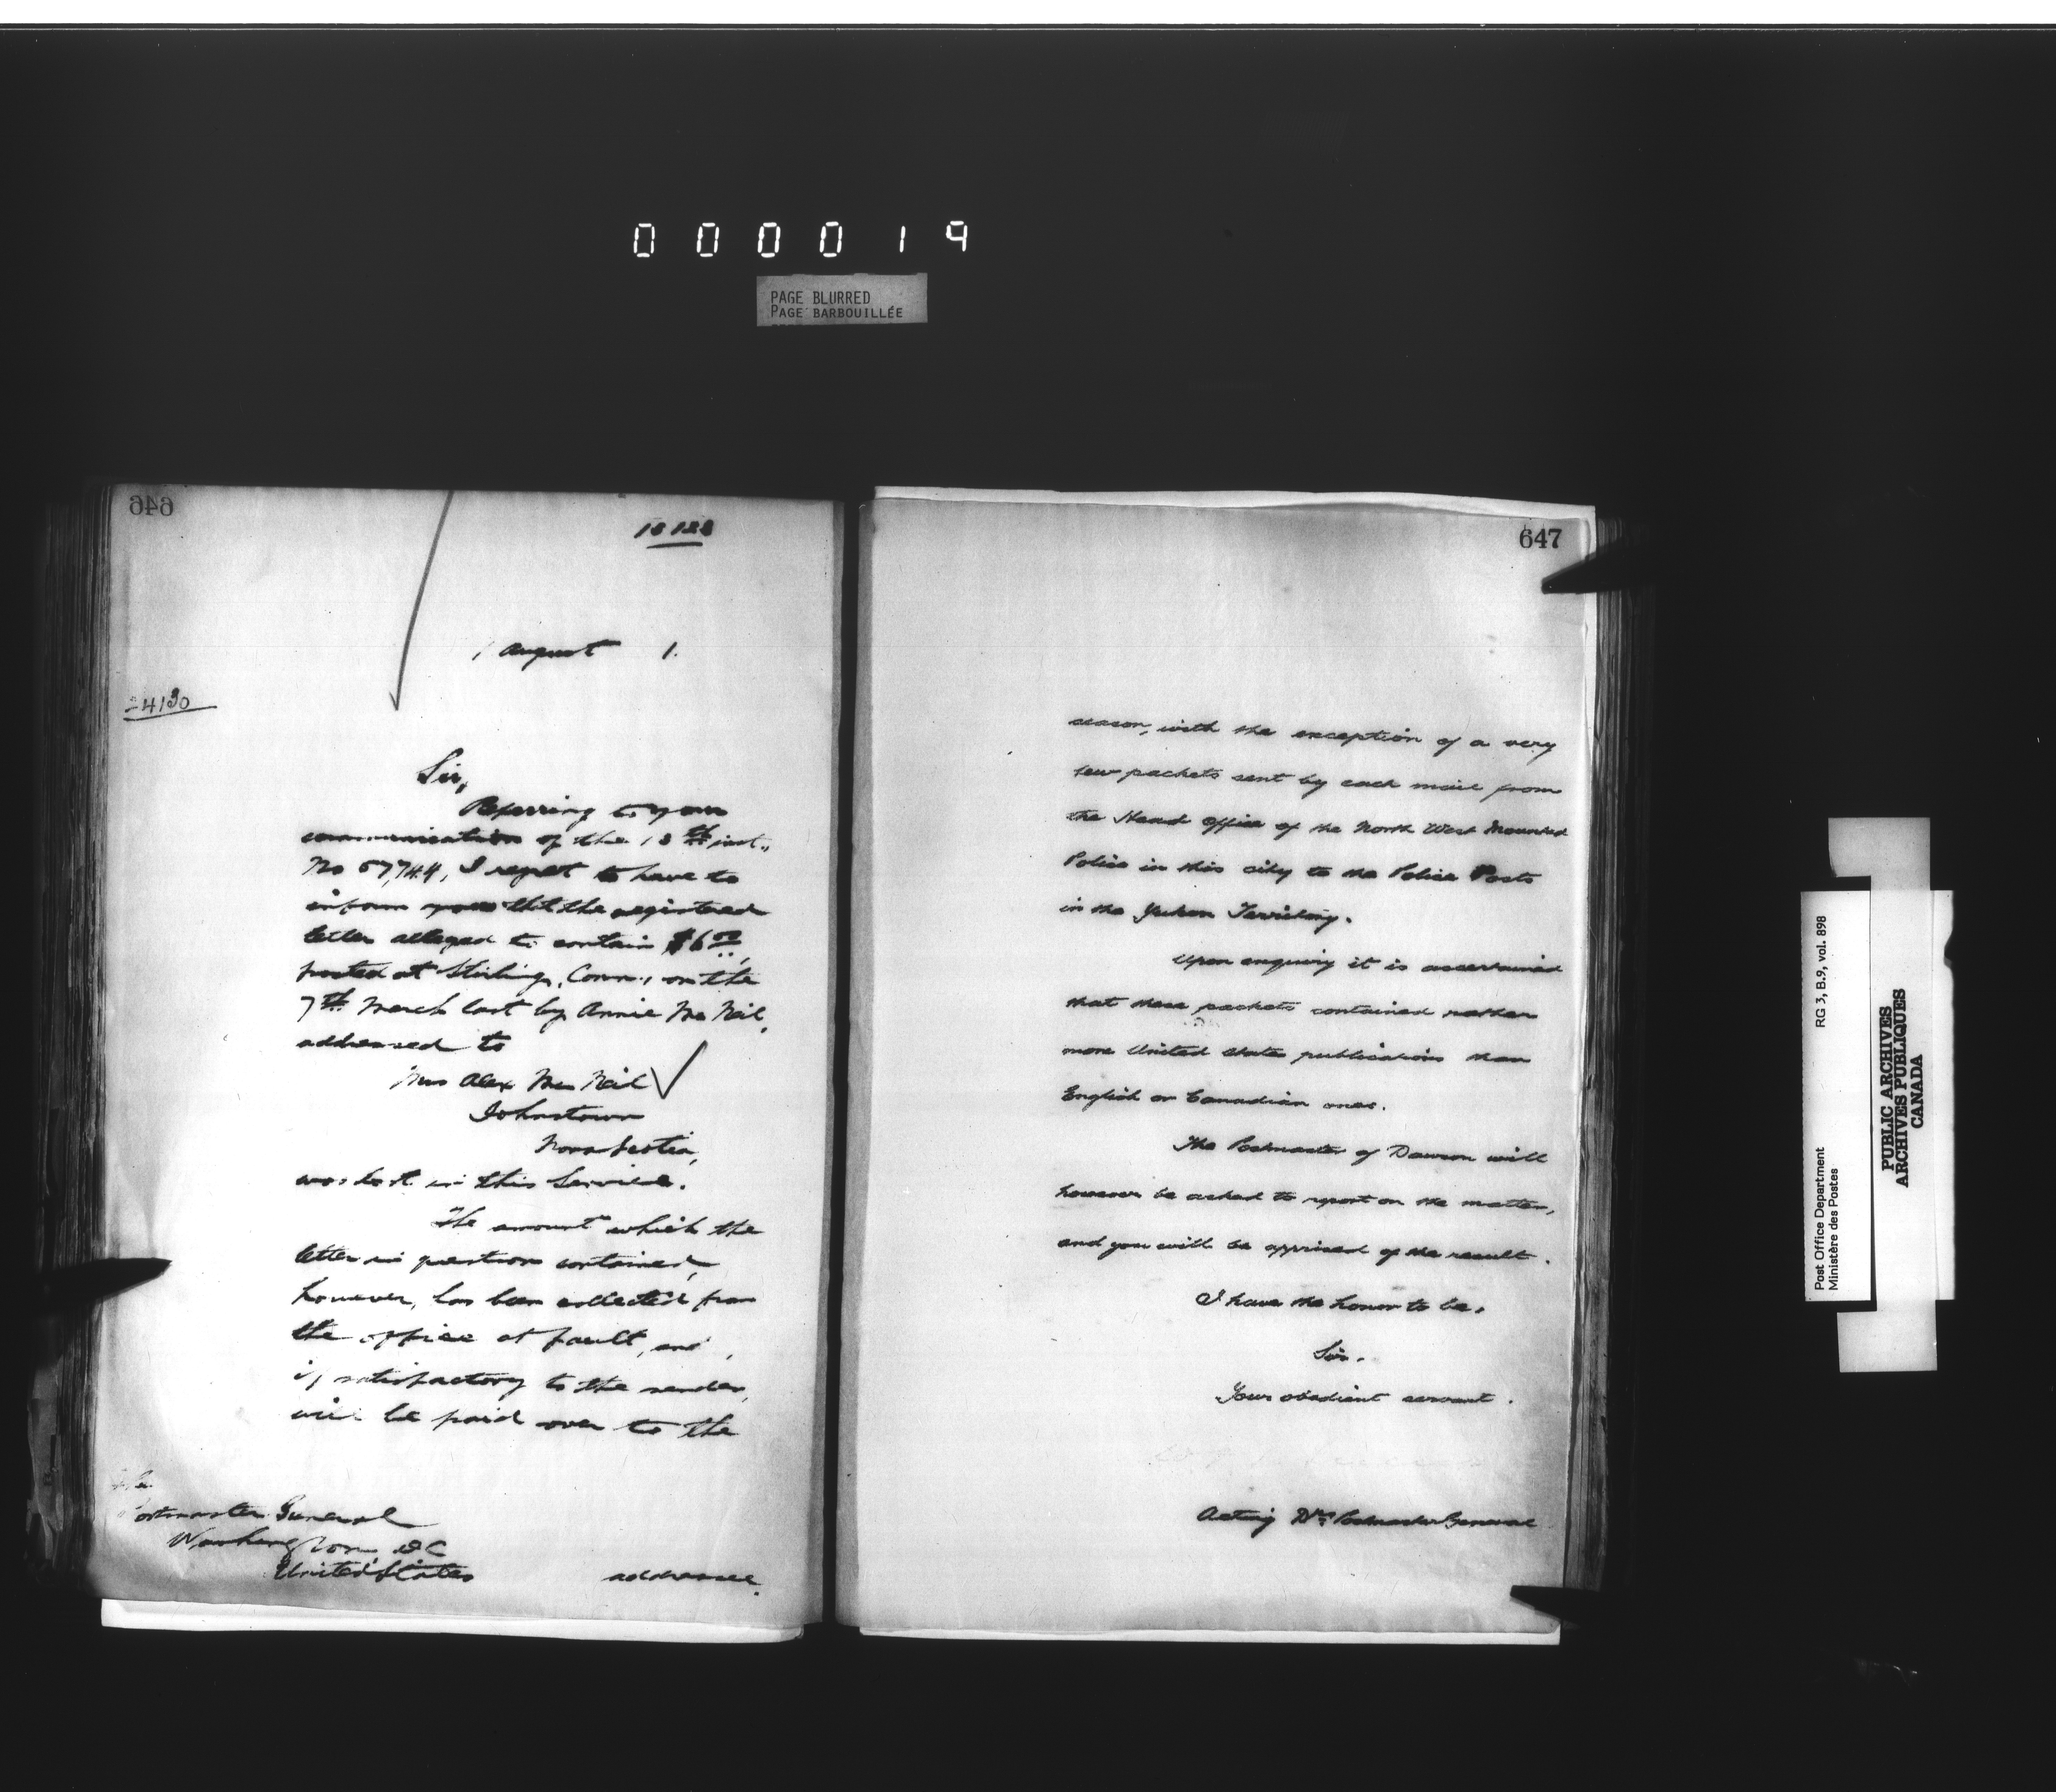 000019
PAGE BLURRED
PAGE BARBOUILLÉE
646
18188
1 August 1.
24130
Sir,
Referring to your
communication of the 18th inst.,
No 57,744, I regret to have to
inform you that the registered
letter alleged to contain $6.00,
posted at Stirling, Conn., on the
7th March last by Annie McNeil,
addressed to
Mrs Alex McNeil
Johnstown
Nova Scotia,
was lost in this Service.
The amount which the
letter in question contained,
however, has been collected from
the office at fault, and,
if satisfactory to the sender,
will be paid over to the
The
Postmaster General
Washington DC
United States
addressee.
647
season, with the exception of a very
few packets sent by each mail from
the Head Office of the North West Mounted
Police in this city to the Police Posts
in the Yukon Territory.
Upon enquiry it is ascertained
that these packets contained rather
more United States publications than
English or Canadian ones.
The Postmaster of Dawson will
however be asked to report on the matter,
and you will be apprised of the result.
I have the honor to be,
Sir.
Your obedient servant.
Acting Dy. Postmaster General
Post Office Department
Ministère des Postes
RG 3, B.9, vol. 898
PUBLIC ARCHIVES
ARCHIVES PUBLIQUES
CANADA